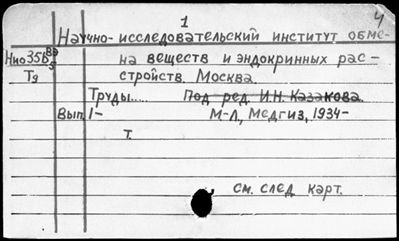 1 4
Научно-исследовательский институт обме-
Нио35б на веществ и эндокринных рас-
Тд стройств. Москва.
Труды..... Под ред. И.Н. Казакова.
Вып. 1- М-Л, Медгиз, 1934-
т.
см. след. карт.